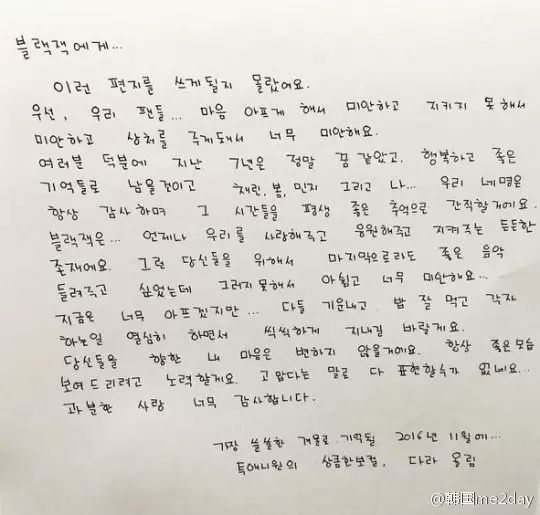 블랙잭에게...
이런 편지를 쓰게될지 몰랐어요.
우선, 우리 팬들... 마음 아프게 해서 미안하고 지키지 못해서
미안하고 상처를 주게돼서 너무 미안해요.
여러분 덕분에 지난 7년은 정말 꿈 같았고, 행복하고 좋은
기억들로 남을것이고 채린, 봄, 민지 그리고 나... 우리 네명은
항상 감사하며 그 시간들을 평생 좋은 추억으로 간직할거에요.
블랙잭은... 언제나 우리를 사랑해주고 응원해주고 지켜주는 든든한
존재에요. 그런 당신들을 위해서 마지막으로라도 좋은 음악
들려주고 싶었는데 그러지못해서 아쉽고 너무 미안해요...
지금은 너무 아프겠지만... 다들 기운내고 밥 잘 먹고 각자
하는일 열심히 하면서 씩씩하게 지내길 바랄게요.
당신들을 향한 내 마음은 변하지 않을거에요. 항상 좋은모습
보여드리려고 노력할게요. 고맙다는 말로 다 표현할수가 없네요...
과분한 사랑 너무 감사합니다.
가장 쓸쓸한 겨울로 기억될 2016년 11월에...
투애니원의 상큼한보컬, 다라 올림
@韩国me2day